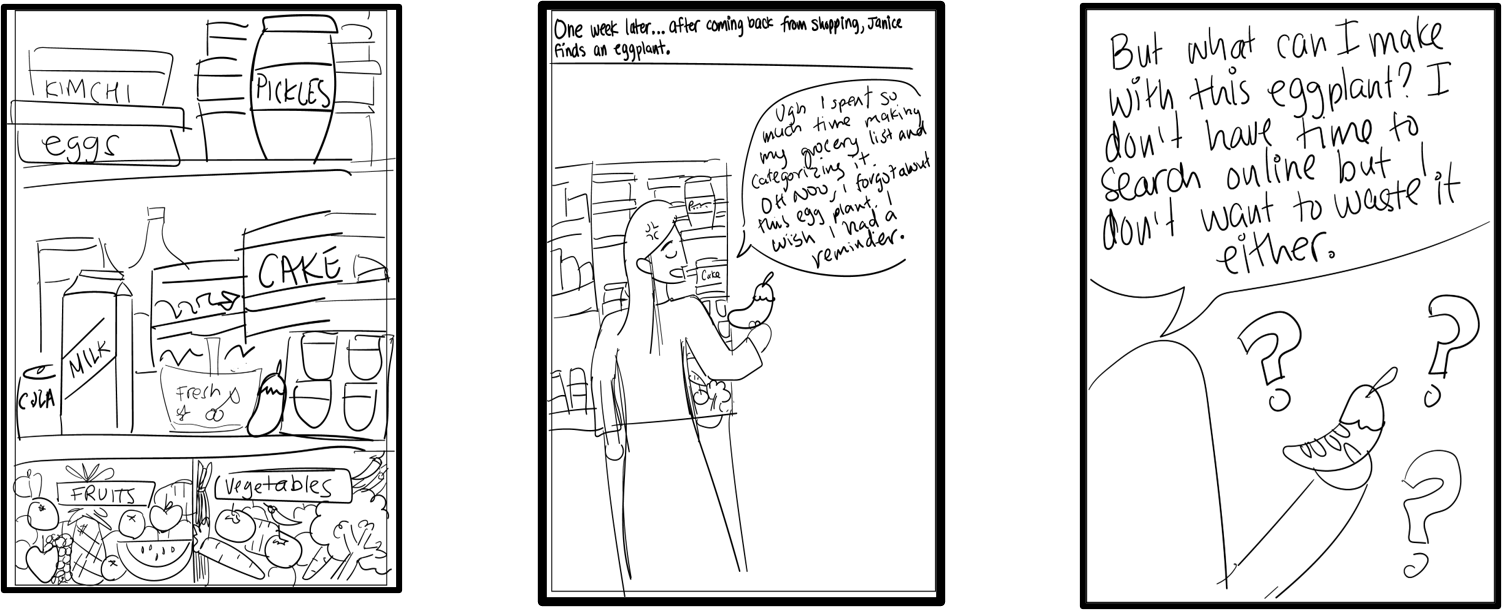 KIMCHI
eggs
PICKLES
CAKE
MILK
COLA
Fresh
FRUITS
vegetables
One week later... after coming back from shopping, Janice
finds an eggplant.
Ugh I spent so
much time making
my grocery list and
categorizing it.
OH NOO, i forgot about
this egg plant. I
wish I had a
reminder.
Cake
But what can I make
with this eggplant? I
don't have time to
search online but I
don't want to waste it
either.
?
?
?